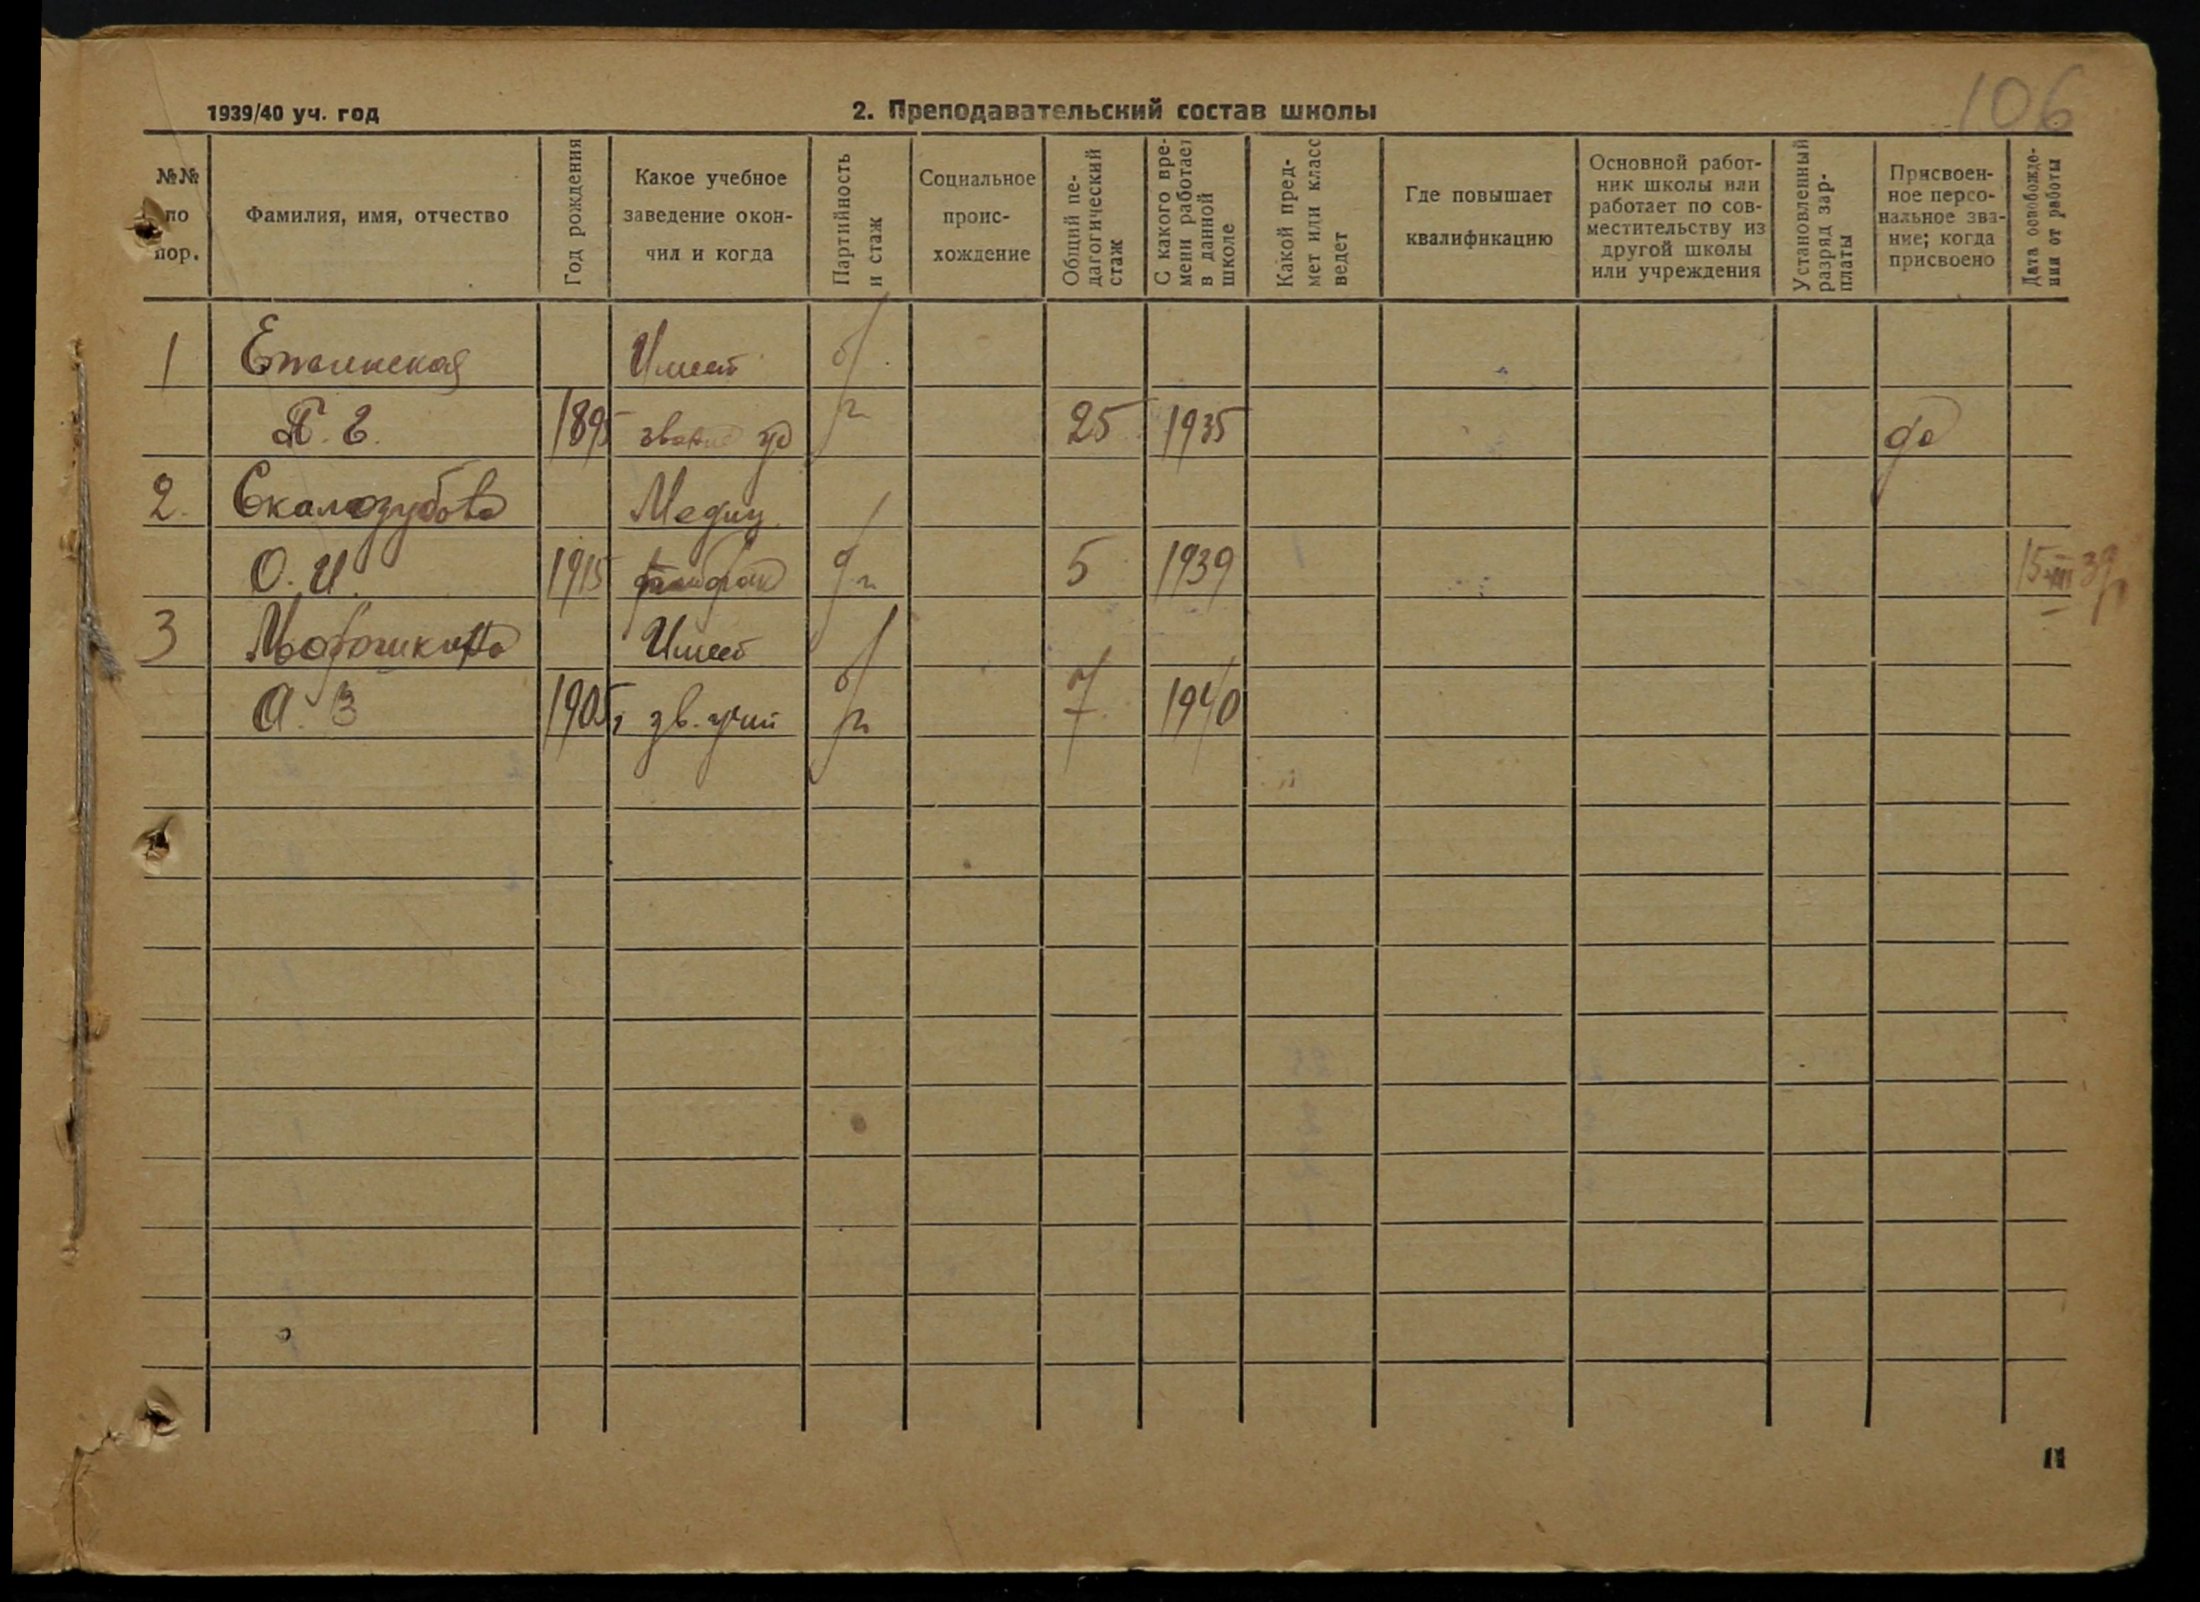 106
1939/40 уч. год
2. Преподавательский состав школы
№№ по пор.
Фамилия, имя, отчество
Год рождения
Какое учебное заведение окончил и когда
Партийность и стаж
Социальное происхождение
Общий педагогический стаж
С какого времени работает в данной школе
Какой предмет или класс ведет
Где повышает квалификацию
Основной работник школы или работает по совместительству из другой школы или учреждения
Установленный разряд зарплаты
Присвоенное персональное звание; когда присвоено
Дата освобождения от работы
1 Имеет б/
1895 звание 25 1935 да
2. Скалозубова Медиц.
О. И. 1915 5 1939 15 39
3 Имеет б/
А. З 1905 зв. учит п 7 1940
11